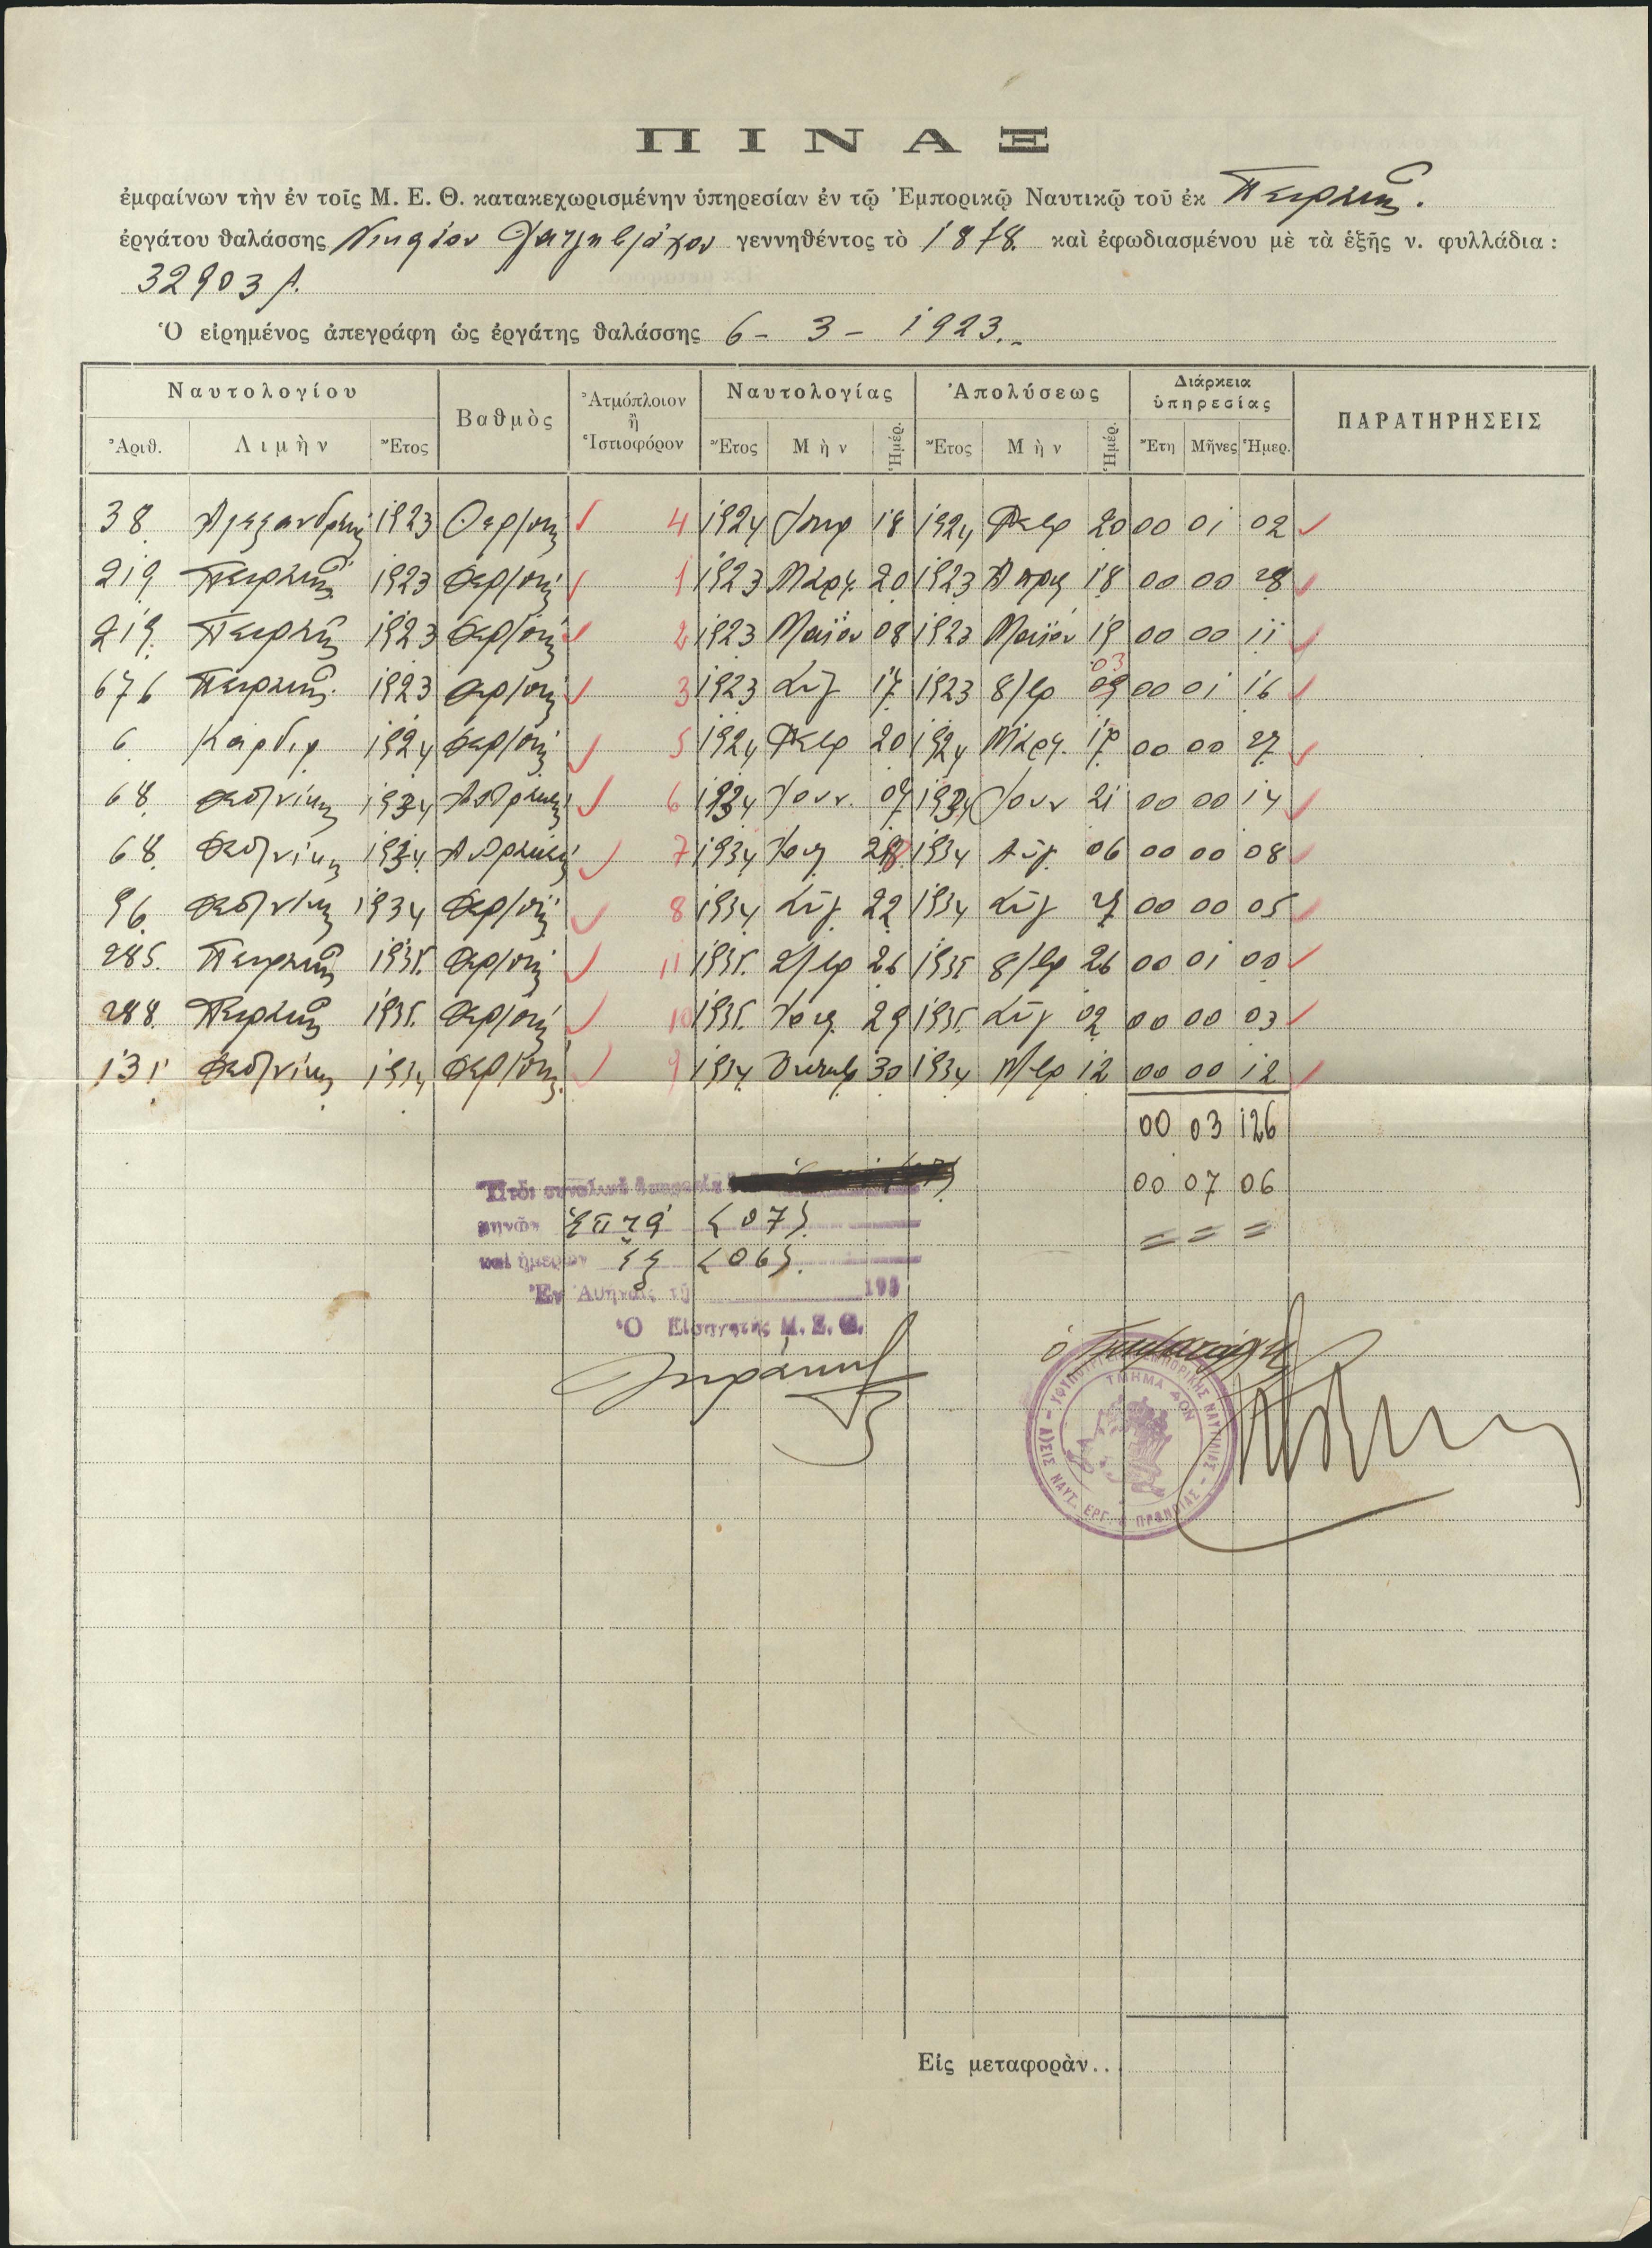 ΠΙΝΑΞ
ἐμφαίνων τὴν ἐν τοῖς Μ. Ε. Θ. κατακεχωρισμένην ὑπηρεσίαν ἐν τῷ Ἐμπορικῷ Ναυτικῷ τοῦ ἐκ Πειραιῶς.
ἐργάτου θαλάσσης γεννηθέντος τὸ 1878 καὶ ἐφωδιασμένου μὲ τὰ ἑξῆς ν. φυλλάδια :
32903
Ὁ εἰρημένος ἀπεγράφη ὡς ἐργάτης θαλάσσης 6 - 3 - 1923.
Ναυτολογίου Βαθμὸς Ἀτμόπλοιον ἢ Ἱστιοφόρον Ναυτολογίας Ἀπολύσεως Διάρκεια ὑπηρεσίας ΠΑΡΑΤΗΡΗΣΕΙΣ
Ἀριθ. Λιμὴν Ἔτος Ἔτος Μὴν Ἡμέρ. Ἔτος Μὴν Ἡμέρ. Ἔτη Μῆνες Ἡμερ.
38 1923 Θερ/στὴς 4 1924 18 1924 Φεβρ 20 00 01 02
219 Πειραιῶς 1923 Θερ/στὴς 1 1923 Μάρτ. 20 1923 Ἀπρ 18 00 00 28
219 Πειραιῶς 1923 Θερ/στὴς 2 1923 Μαΐου 08 1923 Μαΐου 19 00 00 11
676 Πειραιῶς 1923 Θερ/στὴς 3 1923 Αὐγ 17 1923 8/βρ 03 00 01 16
6 Κάρδιφ 1924 Θερ/στὴς 5 1924 Φεβρ 20 1924 Μάρτ. 17 00 00 27
68 Θεσ/νίκης 1934 6 1934 Ἰουν. 07 1934 Ἰουν 21 00 00 14
68 Θεσ/νίκης 1934 7 1934 Ἰουλ 28 1934 Αὐγ. 06 00 00 08
96 Θεσ/νίκης 1934 Θερ/στὴς 8 1934 Αὐγ 22 1934 Αὐγ 27 00 00 05
285 Πειραιῶς 1935 Θερ/στὴς 11 1935 26 1935 8/βρ 26 00 01 00
288 Πειραιῶς 1935 Θερ/στὴς 10 1935 Ἰουλ 29 1935 Αὐγ 02 00 00 03
131 Θεσ/νίκης 1934 Θερ/στὴς 9 1934 30 1934 12 00 00 12
00 03 126
Ἤτοι συνολικὴ ὑπηρεσία
00 07 06
μηνῶν ἑπτά (07)
καὶ ἡμερῶν ἕξ (06)
Ἐν Ἀθήναις τῇ 193
Ὁ Εἰσηγητὴς Μ. Ε. Θ.
ὁ Τμηματάρχης
ΥΦΥΠΟΥΡΓΕΙΟΝ ΕΜΠΟΡΙΚΗΣ ΝΑΥΤΙΛΙΑΣ
ΤΜΗΜΑ ΔΟΝ
Δ)ΣΙΣ ΝΑΥΤ. ΕΡΓ. & ΠΡΟΝΟΙΑΣ
Εἰς μεταφορὰν..